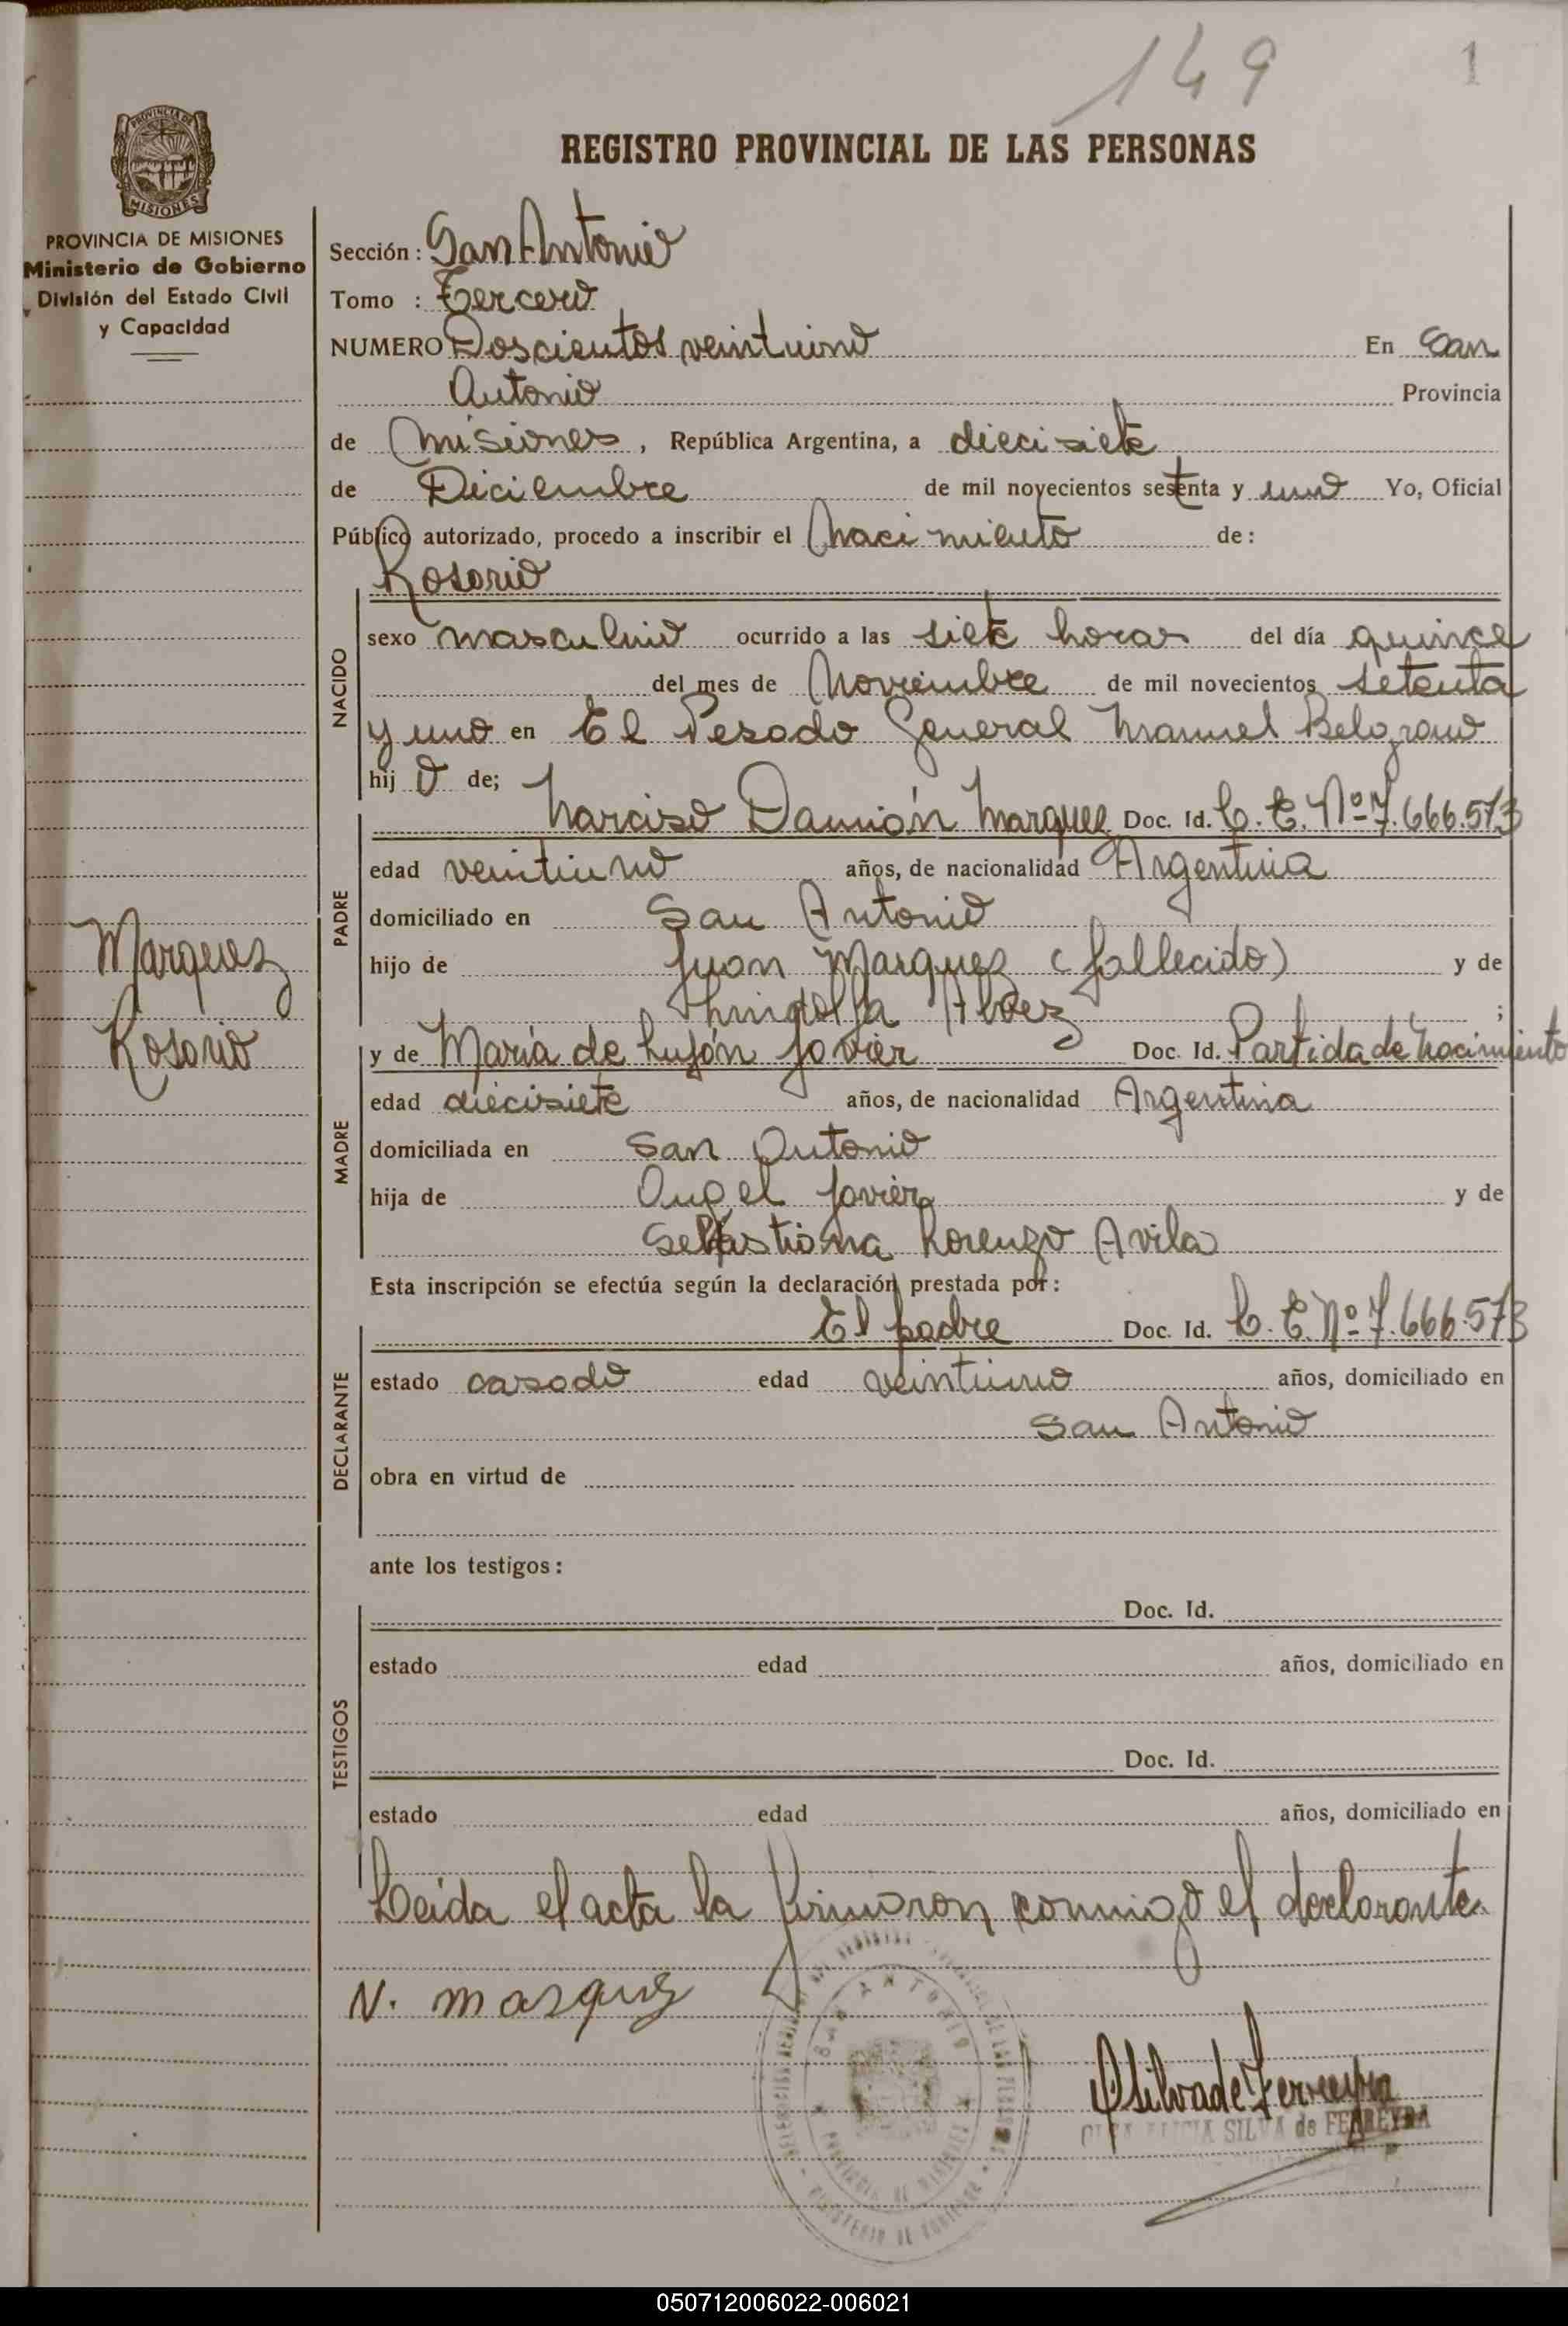 149 1
REGISTRO PROVINCIAL DE LAS PERSONAS
PROVINCIA DE MISIONES
PROVINCIA DE MISIONES
Ministerio de Gobierno
División del Estado Civil
y Capacidad
Sección: San Antonio
Tomo : Tercero
NUMERO Doscientos veintuino En San
Antonio Provincia
de Misiones, República Argentina, a diecisiete
de Diciembre de mil novecientos setenta y uno Yo, Oficial
Público autorizado, procedo a inscribir el Nacimiento de:
Rosario
NACIDO
sexo masculino ocurrido a las siete horas del día quince
del mes de Noviembre de mil novecientos setenta
y uno en El Pesado General Manuel Belgrano
hijo de;
PADRE
Narciso Damián Marquez Doc. Id. C. E. Nº 7.666.573
edad veintiuno años, de nacionalidad Argentina
domiciliado en San Antonio
hijo de Juan Marquez (fallecido) y de
;
Marquez
Rosario
MADRE
y de María de Luján Javier Doc. Id. Partida de Nacimiento
edad diecisiete años, de nacionalidad Argentina
domiciliada en San Antonio
hija de Angel Javier y de
Sebastiana Lorenzo Avila
Esta inscripción se efectúa según la declaración prestada por:
DECLARANTE
El padre Doc. Id. C. E. Nº 7.666.573
estado casado edad veintiuno años, domiciliado en
San Antonio
obra en virtud de
ante los testigos:
TESTIGOS
Doc. Id.
estado edad años, domiciliado en
Doc. Id.
estado edad años, domiciliado en
Leída el acta la firmaron conmigo el declarante.
N. Marquez
SAN ANTONIO
PROVINCIA DE MISIONES
MINISTERIO DE GOBIERNO
OSilvadeFerreyra
ALICIA SILVA de FERREYRA
050712006022-006021